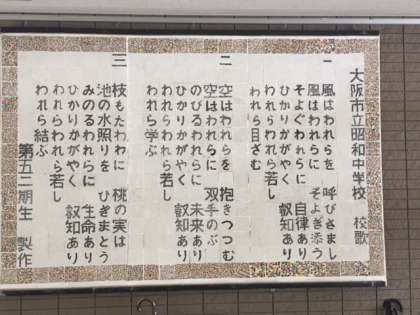 大阪市立昭和中学校 校歌
一
風はわれらを 呼びさまし
風はわれらに そよぎ添う
そよぐわれらに 自律あり
ひかりかがやく 叡知あり
われらわれら若し
われら目ざむ
二
空はわれらを 抱きつつむ
空はわれらに 双手のぶ
のびるわれらに 未来あり
ひかりかがやく 叡知あり
われらわれら若し
われら学ぶ
三
枝もたわわに 桃の実は
池の水照りを ひぎまとう
みのるわれらに 生命あり
ひかりかがやく 叡知あり
われらわれら若し
われら結ぶ
第五二期生 製作